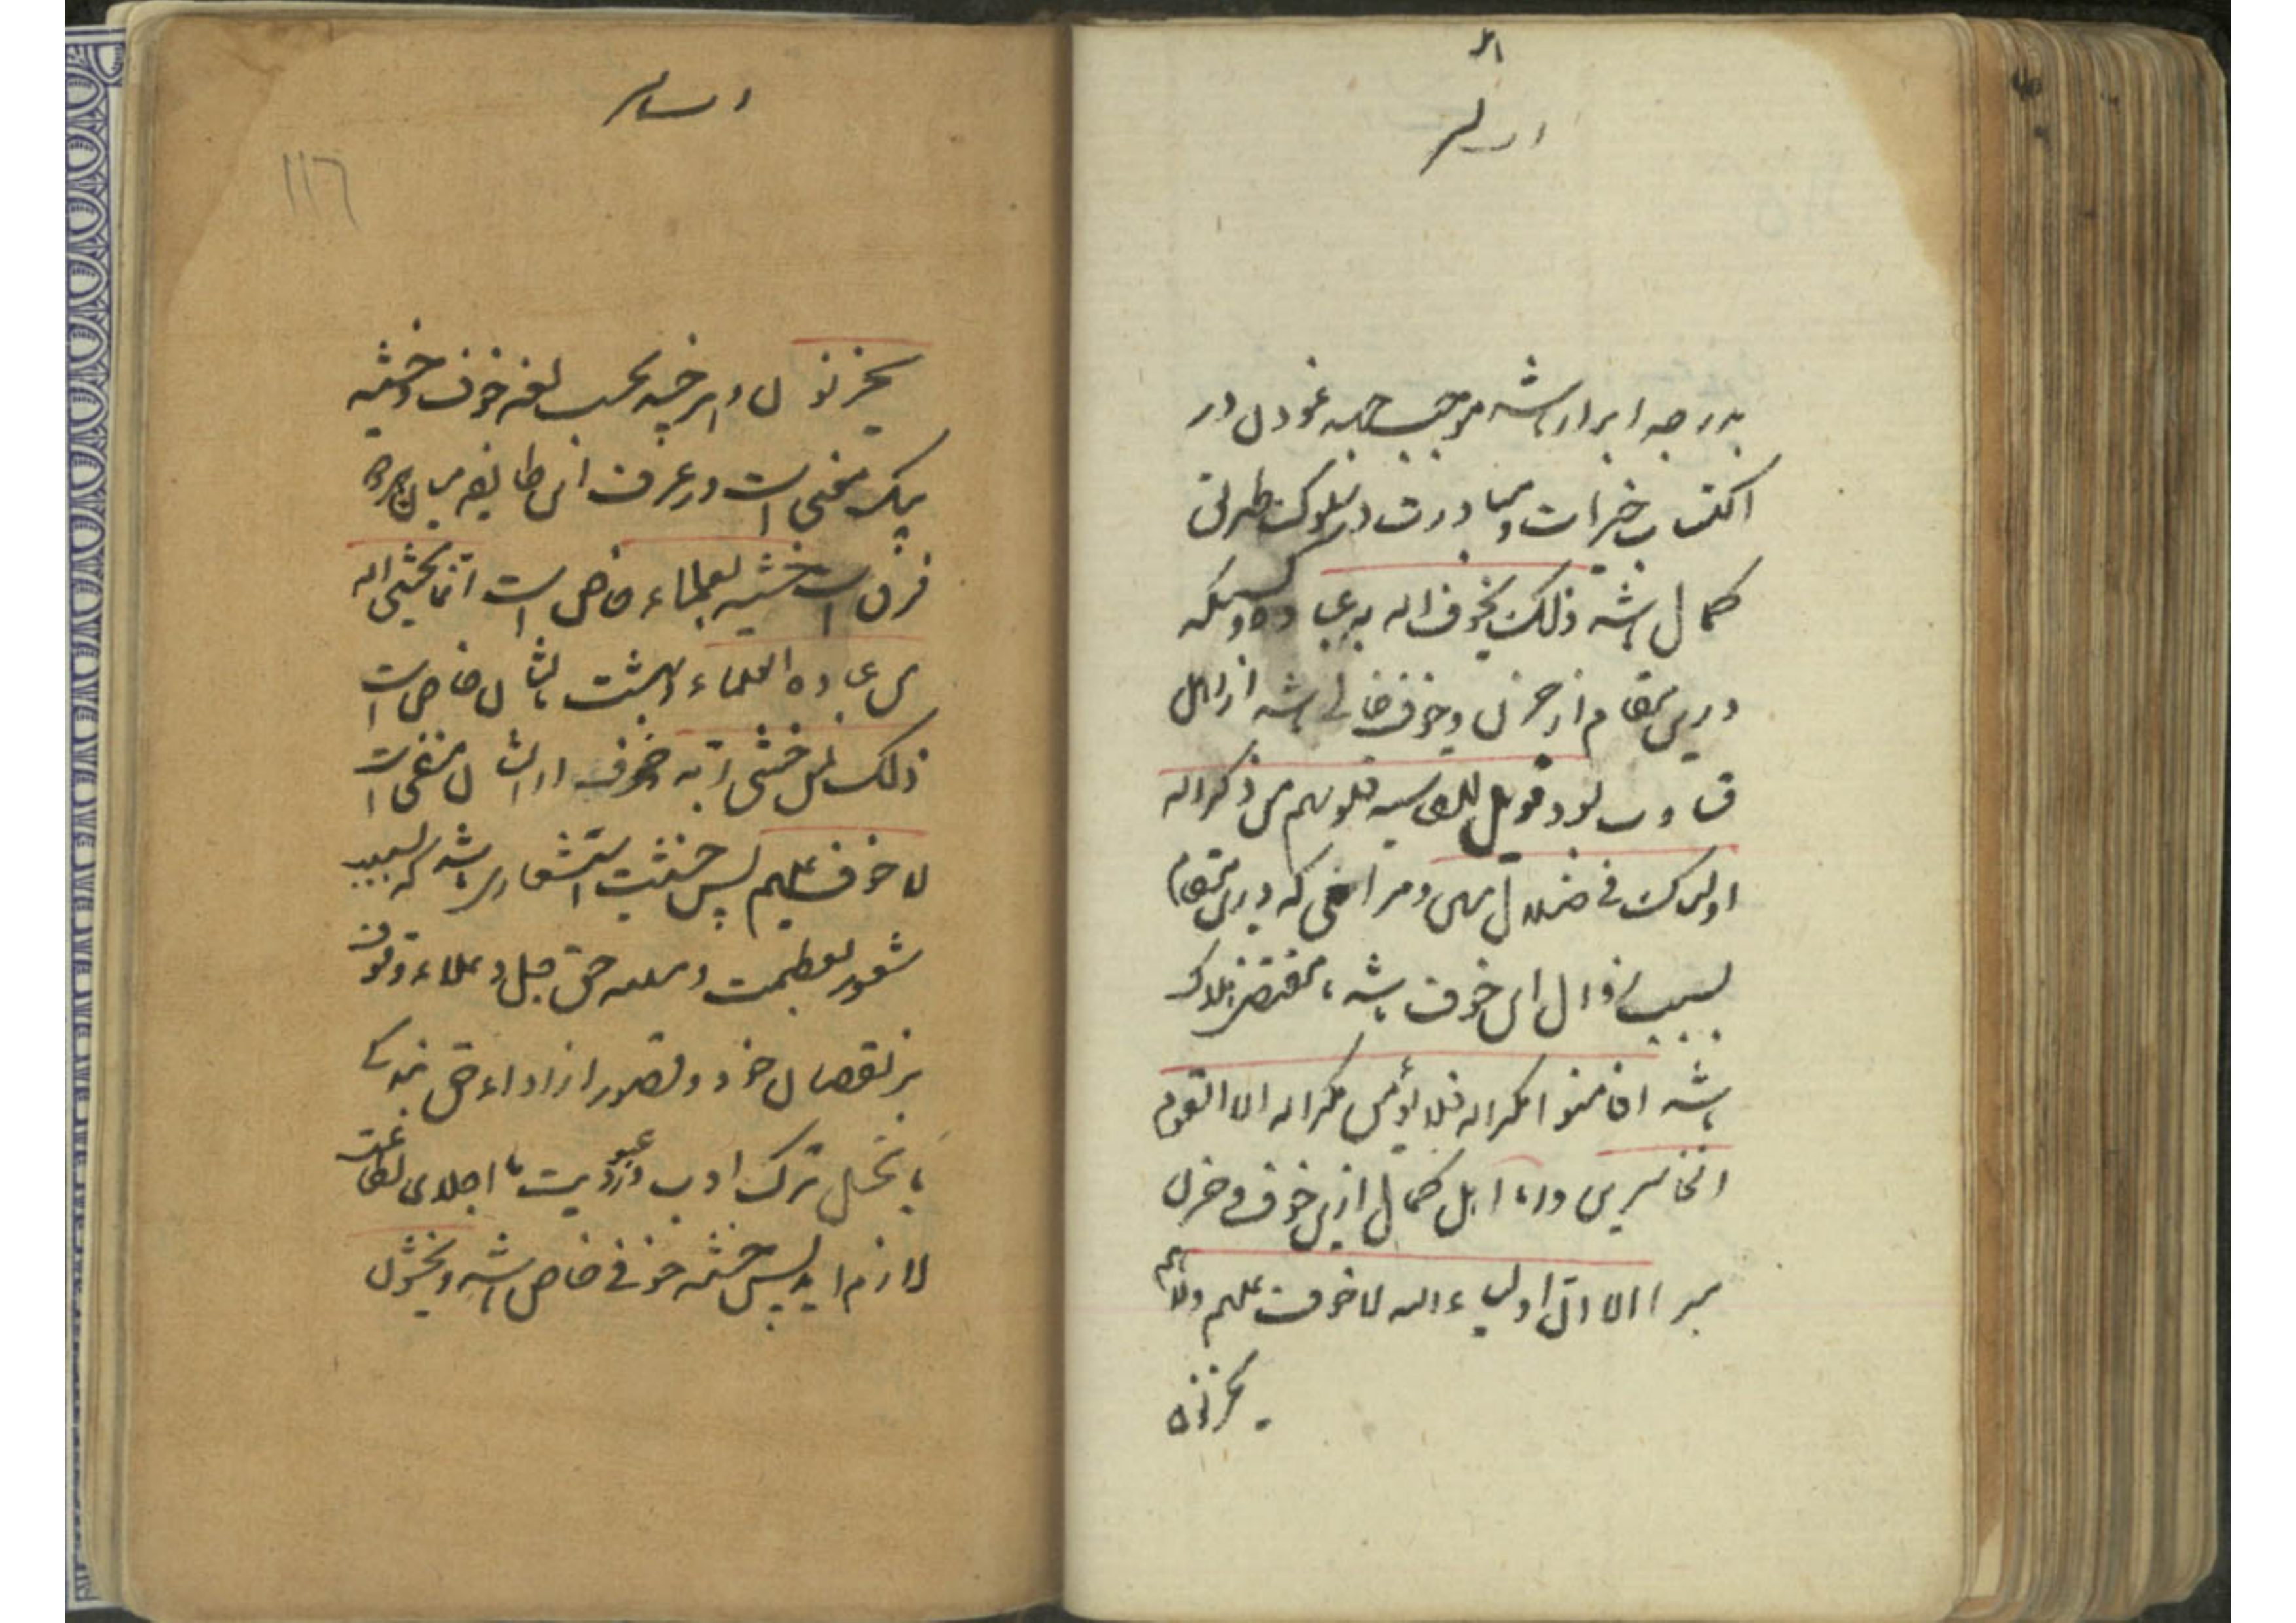 بدرجه ابرار باشد موجب جهد نمودن در
اکتساب خیرات و مبادرت در سلوک طریق
کمال باشد ذلک یخوف الله به عباده و کسیکه
درین مقام از حزن و خوف خالی باشد از اهل
قساوت بود فویل للقاسیه قلوبهم من ذکر الله
اولئک فی ضلال مبین و مر امنی که درین مقام
بسبب زوال این خوف باشد مقتضی هلاک
باشد افامنوا مکر الله فلا یؤمن مکر الله الا القوم
الخاسرین و اما اهل کمال ازین خوف و حزن
مبرا الا ان اولیاء الله لا خوف علیهم ولا هم
یحزنون
۱۱۶
یحزنون و اگر چه بحسب لغه خوف و خشیه
بیک معنی است در عرف این طایفه میان هر دو
فرق است خشیه بعلماء خاص است انما یخشی الله
من عباده العلماء و بهشت بایشان خاص است
ذلک لمن خشی ربه و خوف از ایشان منفی است
لا خوف علیهم پس خشیت استشعاری باشد که بسبب
شعور بعظمت و حق جل و علاء و وقوف
بر نقصان خود و قصور از اداء حق بندگی
یا تخیل ترک ادب در عبودیت یا اخلال بطاعت
لازم اید پس خشیه خوفی خاص باشد و یخشون